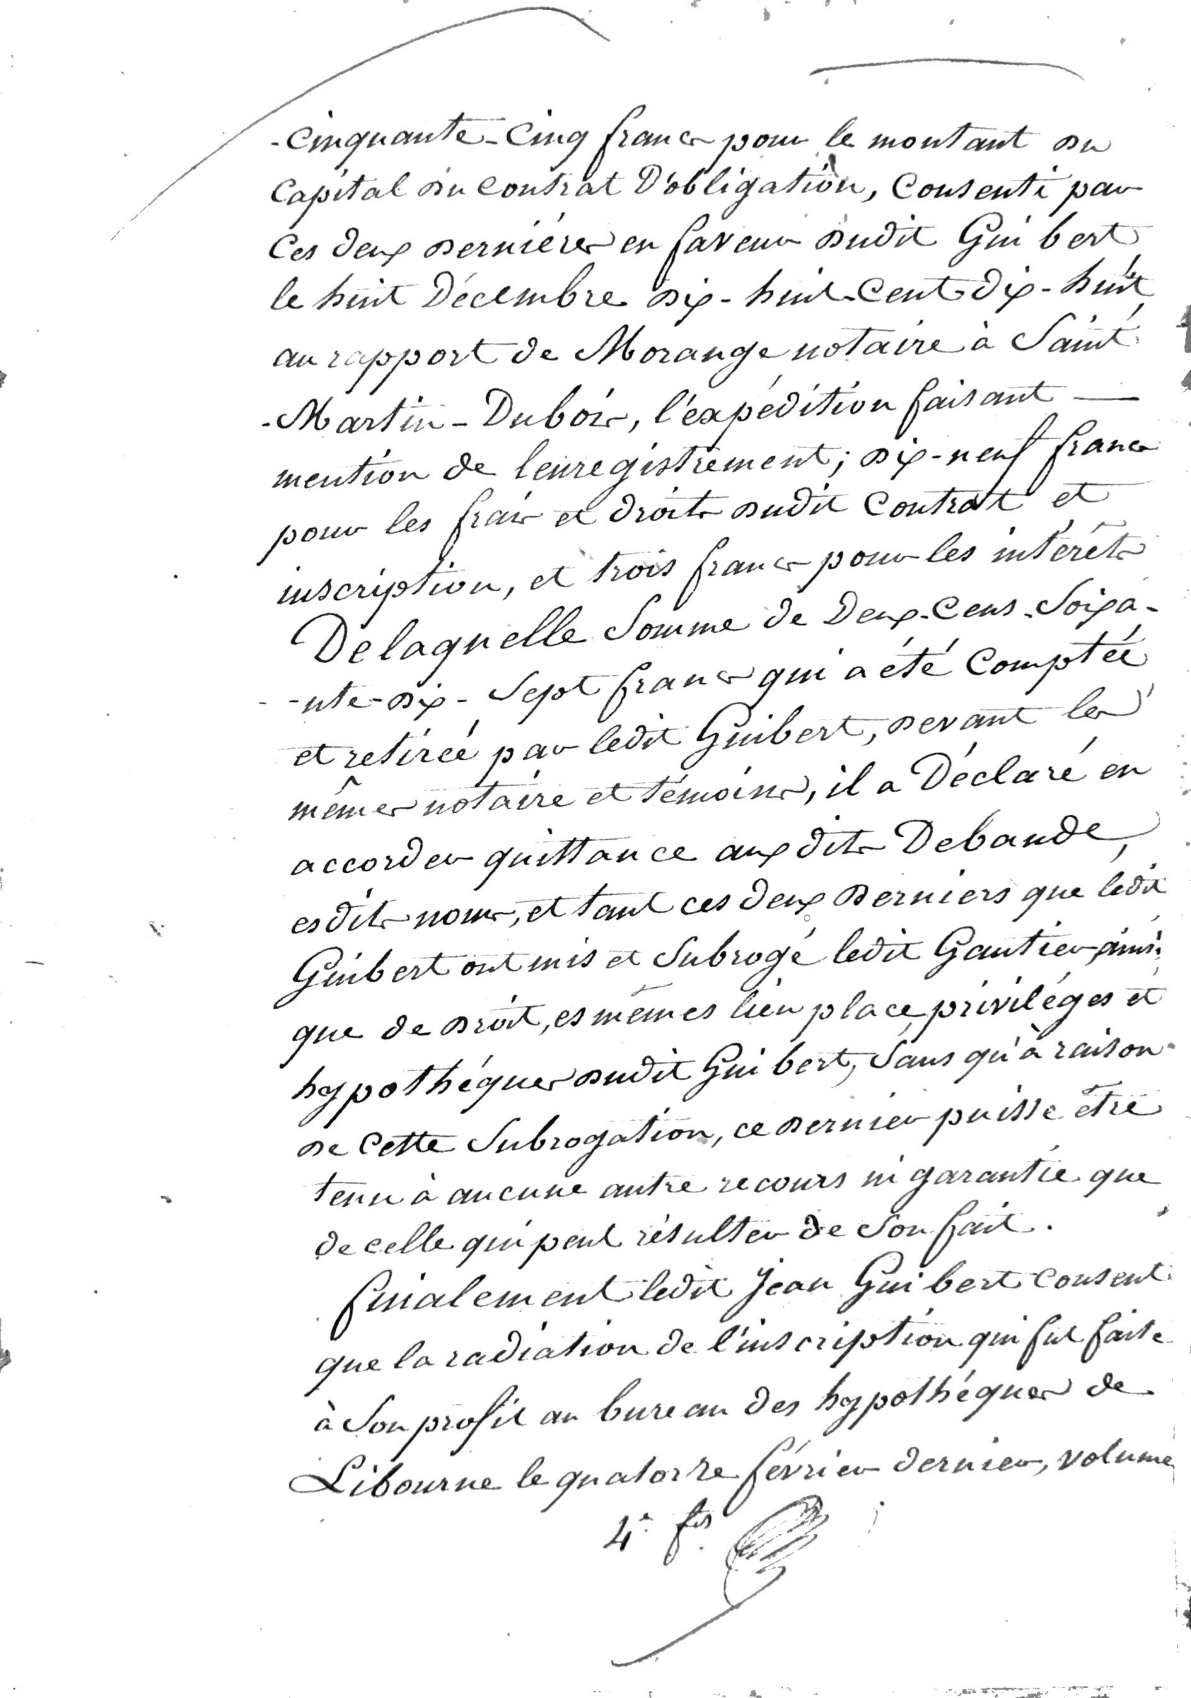 -cinquante-cinq francs pour le montant du
capital du contrat d'obligation, consenti par
ces deux derniéres en faveur dudit Guibert
le huit Décembre dix-huit-cent dix-huit,
au rapport de Morange notaire à Saint
-Martin-Dubois, l'éxpédition faisant —
mention de lenregistrement; dix-neuf francs
pour les frais et droits dudit contrat et
inscription, et trois francs pour les intérêts
De laquelle somme de Deux-Cens-Soixa-
-nte-dix-sept francs qui a été comptée
et retirée par ledit Guibert, devant les
mêmes notaire et témoins, il a Déclaré en
accorder quittance auxdits Debande,
esdits noms, et tant ces deux derniers que ledit
Guibert ont mis et subrogé ledit Gautier ainsi
que de droit, es mêmes lieu place, priviléges et
hypothéques dudit Guibert, sans qu'à raison
de cette subrogation, ce dernier puisse être
tenu à aucune autre recours ni garantie que
de celle qui peut résulter de son fait.
finalement ledit Jean Guibert consent
que la radiation de l'inscription qui fut faite
à son profit au bureau des hypothéques de
Libourne le quatorze février dernier, volume
4e. fos.